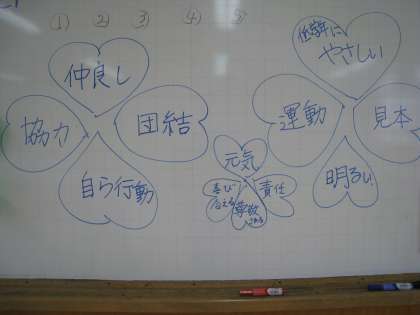 ① ② ③ ④ ⑤
仲良し
協力
団結
自ら行動
元気
喜び
合える
責任
尊敬
される
低学年に
やさしい
運動
見本
明るい